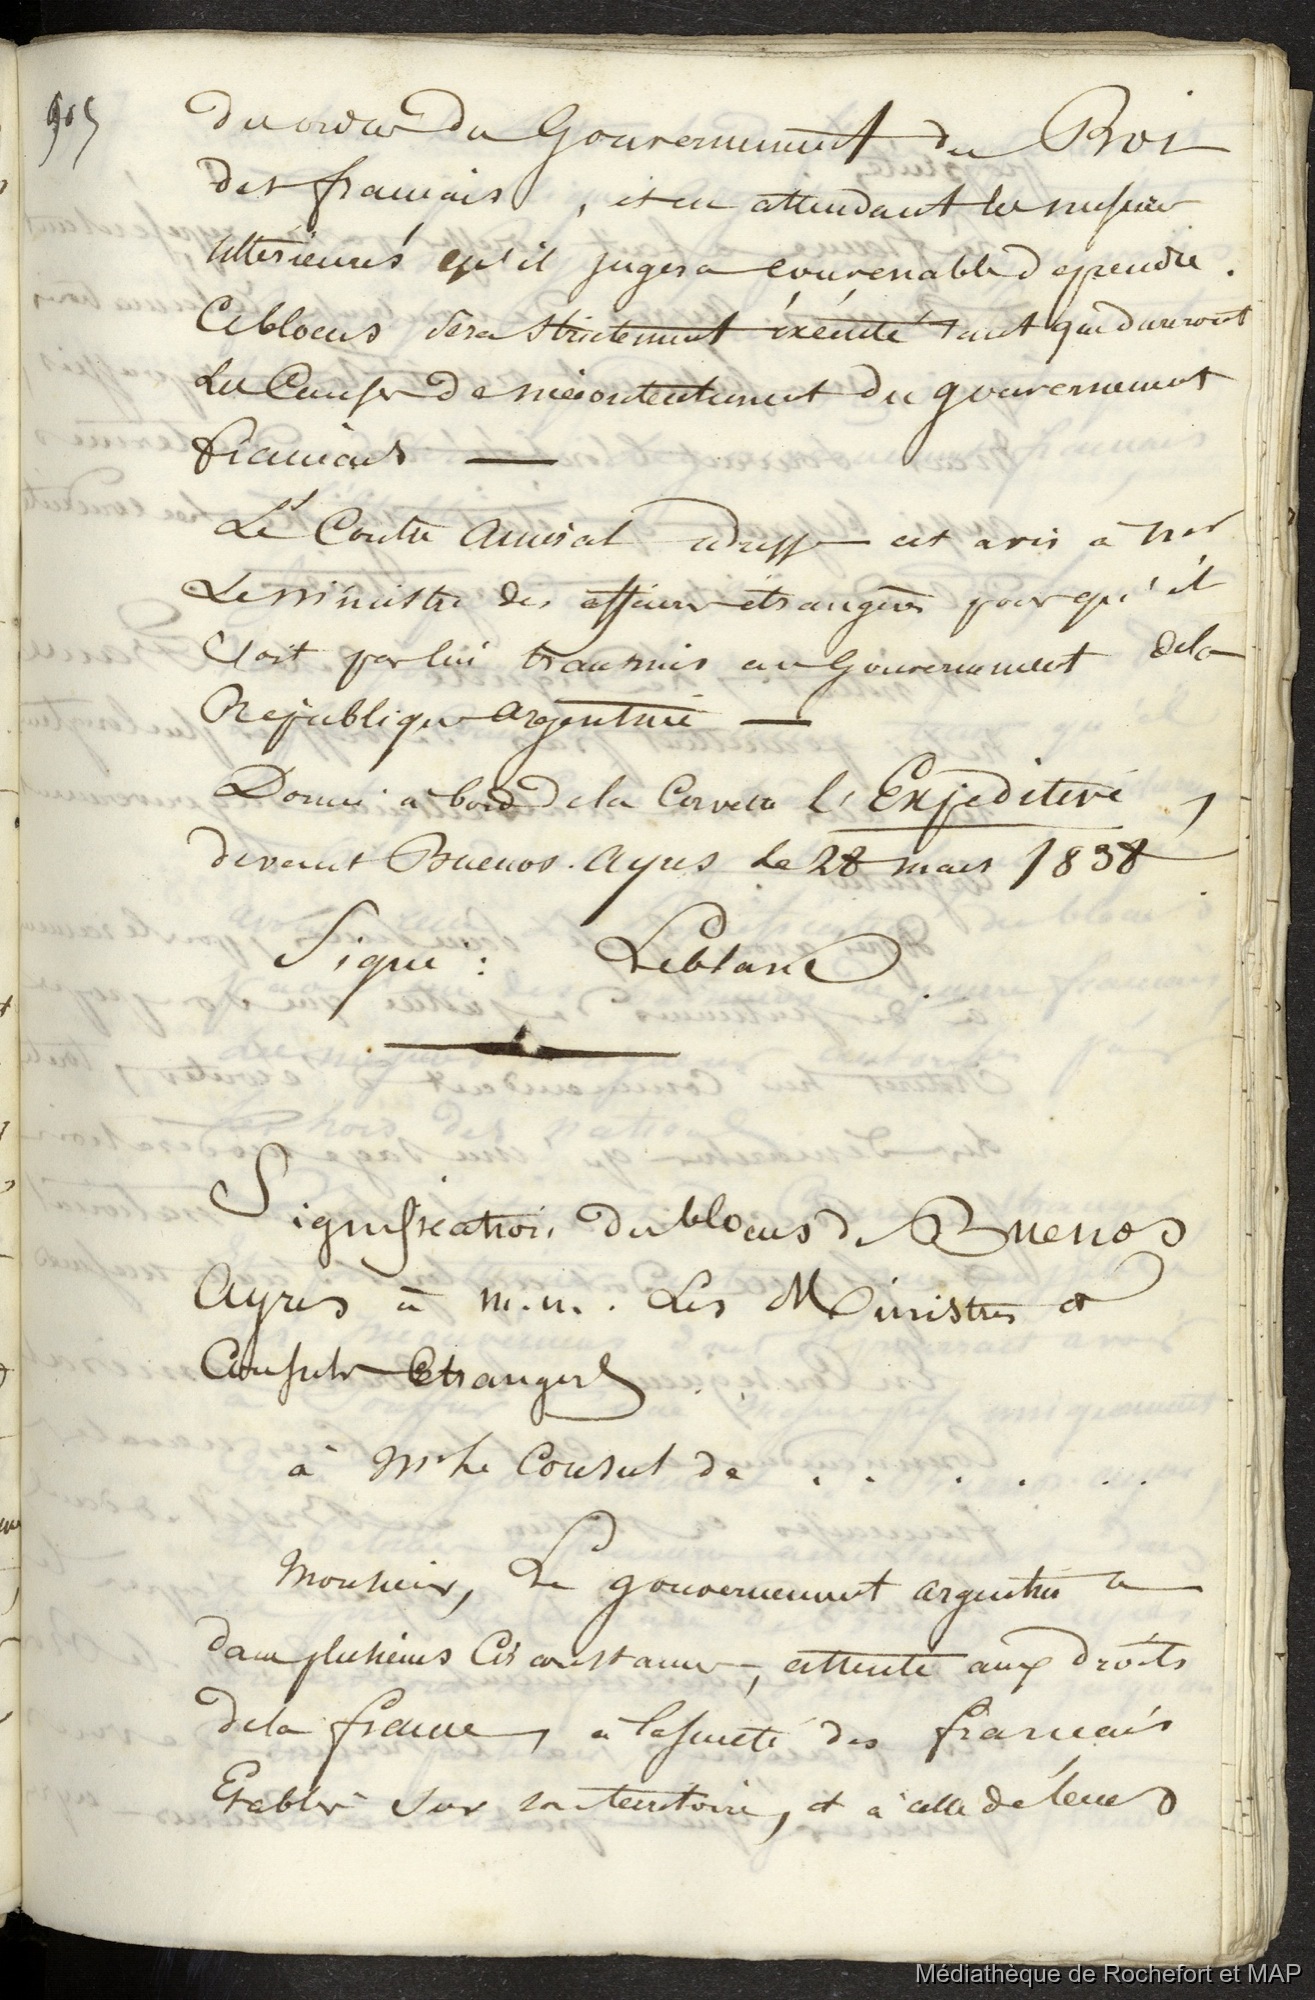 905
des ordres du Gouvernement du Roi
des français, et en attendant les mesures
ultérieures qu'il jugera convenable de prendre.
Ce blocus sera strictement éxécuté tant que dureront
les causes de mécontentement du gouvernement
français —
Le Contre amiral adresse cet avis à Mr
Le ministre des affaires étrangères pour qu'il
soit par lui transmis au Gouvernement de la
République argentine —
Donné à bord de la Corvette l'Expéditive,
devant Buenos-Ayres le 28 mars 1838
Signé : Leblanc
Signification du blocus de Buenos
Ayres à m.m. Les Ministres et
Consuls Etrangers
à Mr Le Consul de . . . . . .
Monsieur, Le gouvernement argentin a
dans plusieurs Circonstances, attenté aux droits
de la france, à la sureté des français
Etablis sur son territoire, et à celle de leurs
Médiathèque de Rochefort et MAP